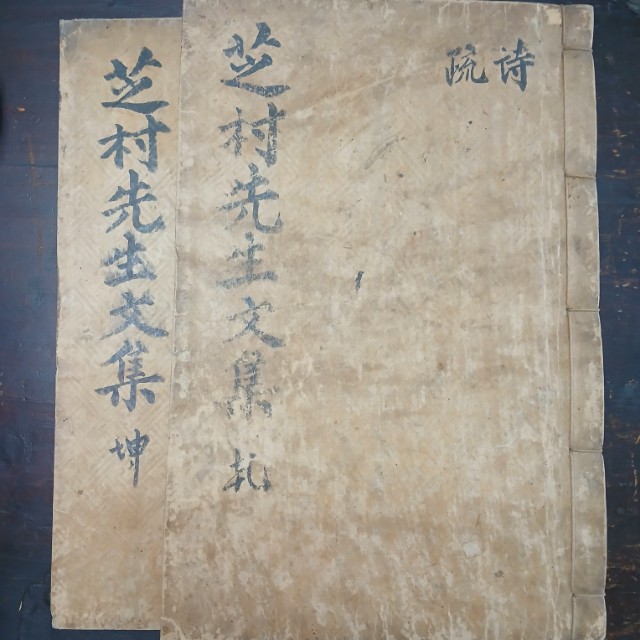 詩
疏
芝村先生文集 乾
芝村先生文集 坤